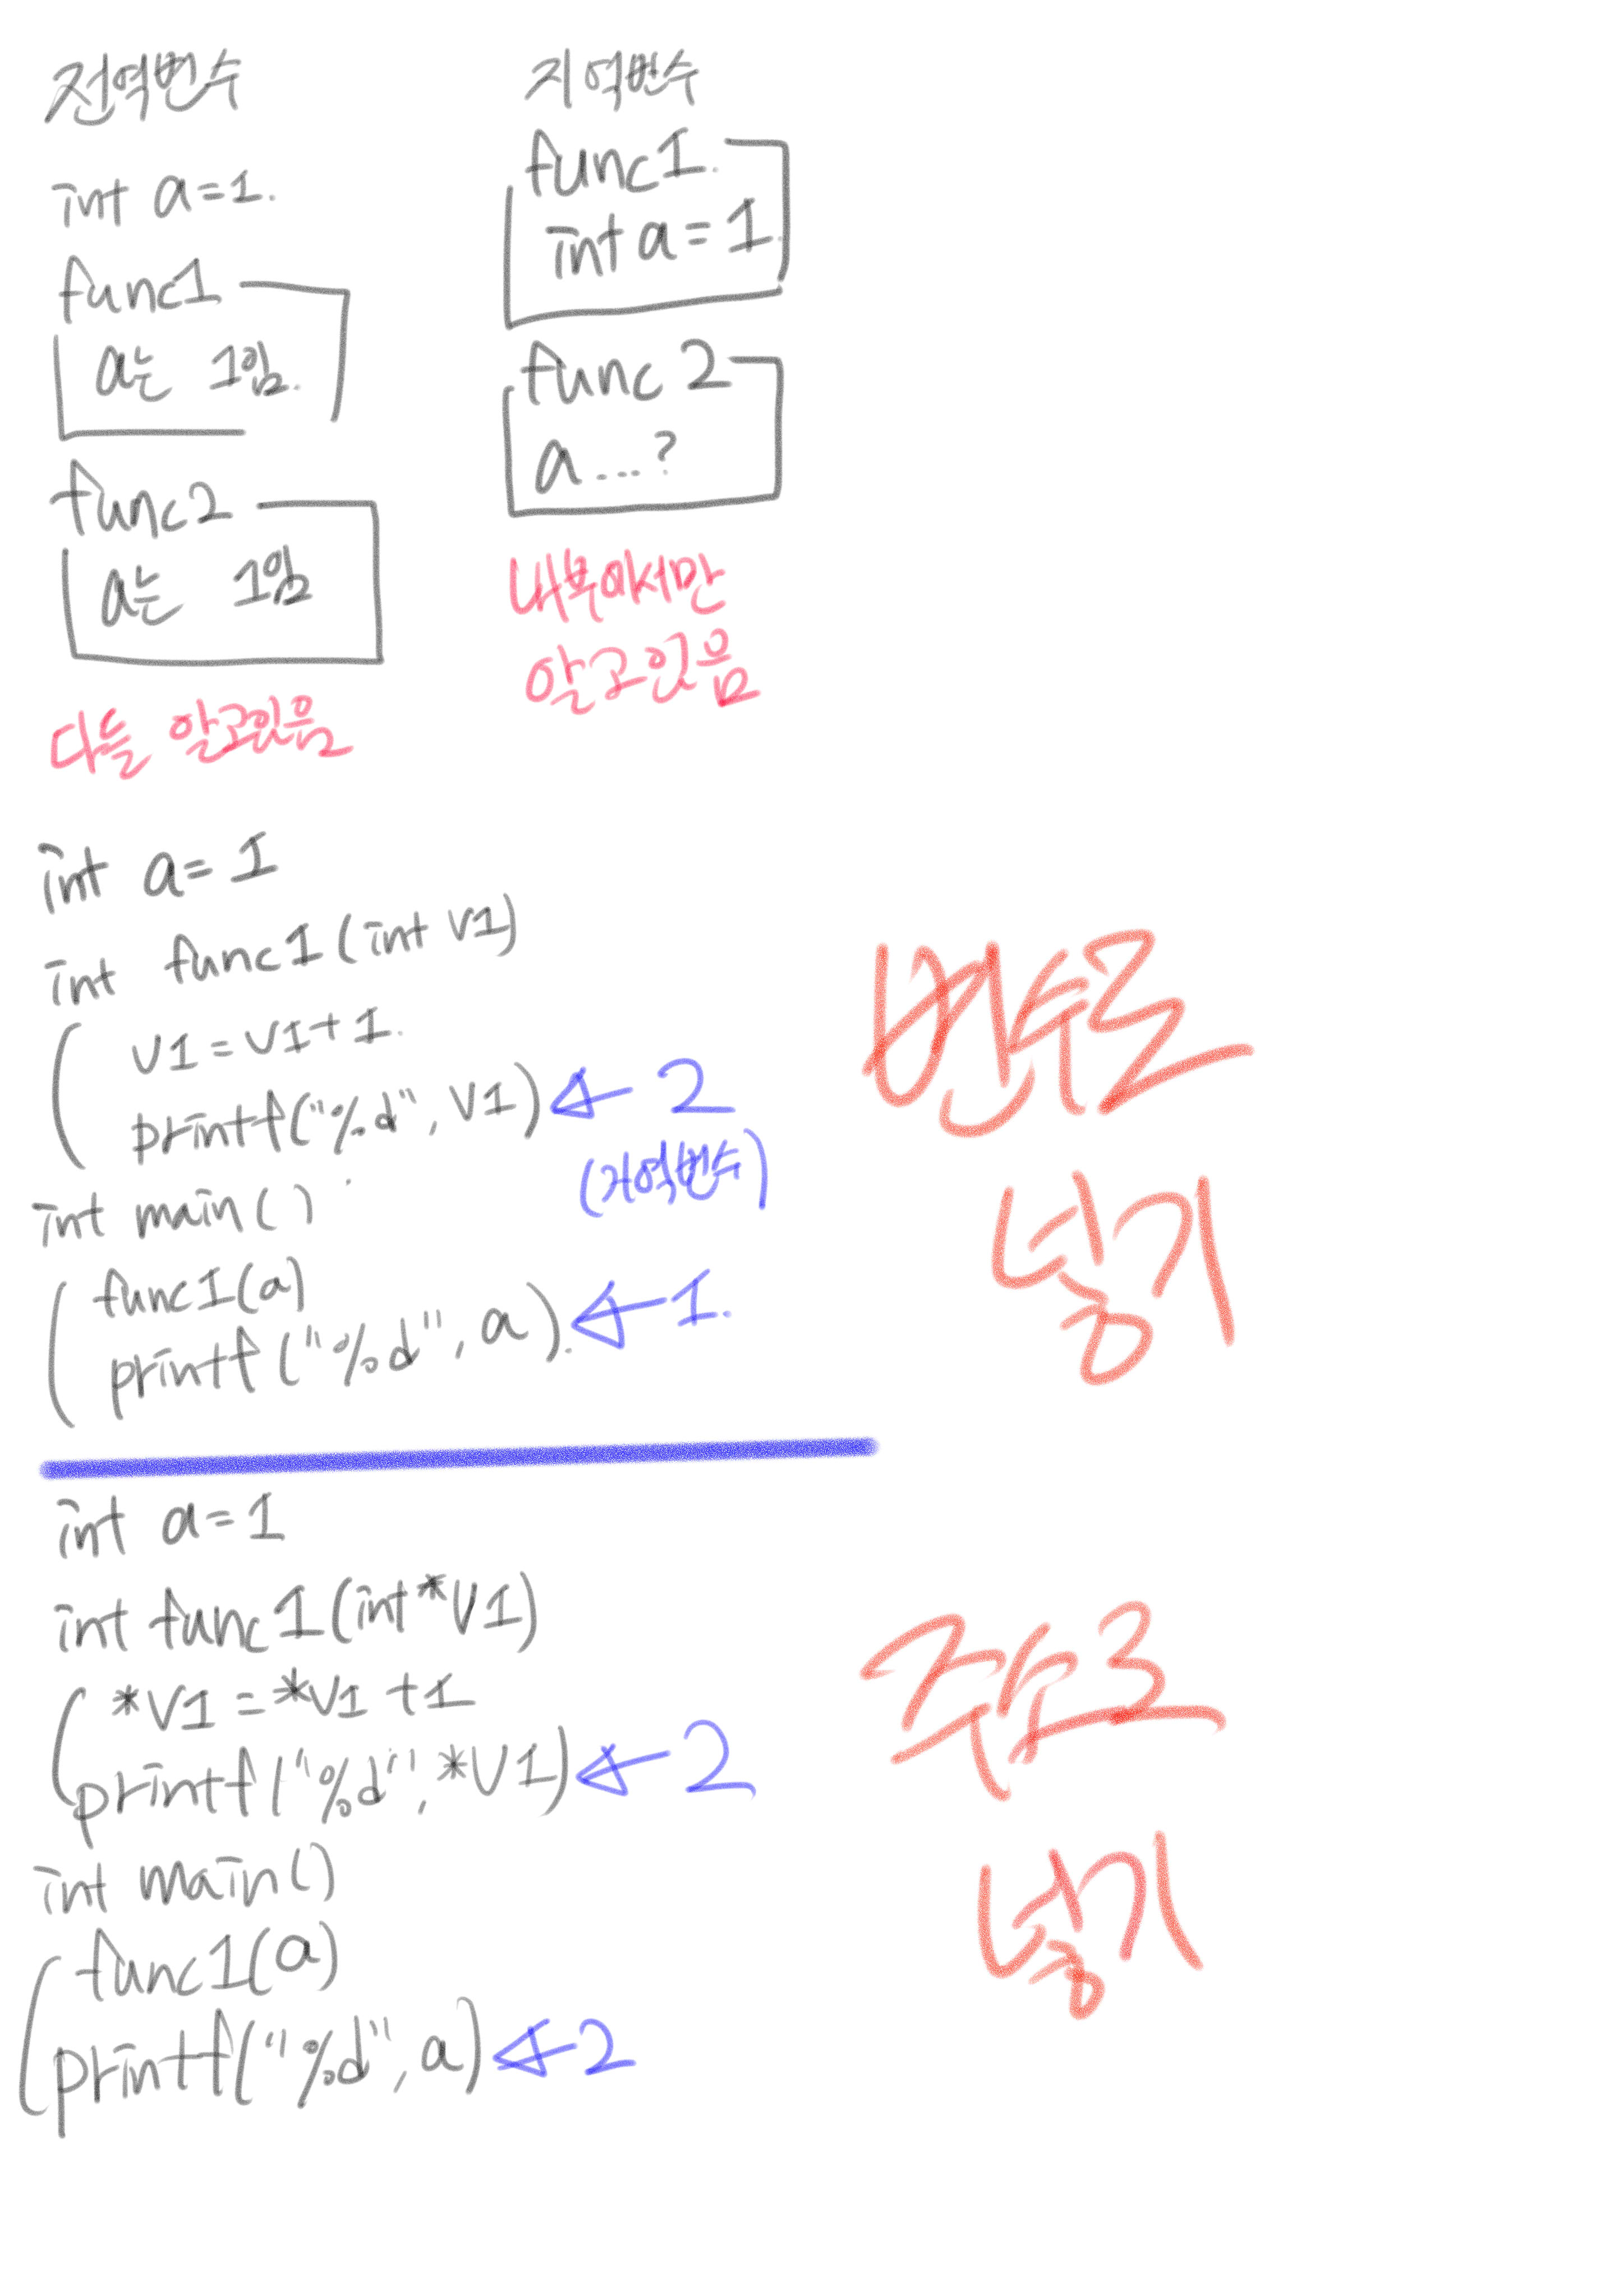 전역변수
int a=1.
func1
a는 1임.
func2
a는 1임
다들 알고있음
지역변수
func1.
int a=1
func2
a....?
내부에서만
알고있음
int a=1
int func1(int V1)
V1=V1+1.
printf("%d", V1) ← 2
(지역변수)
int main()
func1(a)
printf("%d", a). ← 1.
변수로
넣기
int a=1
int func1(int*V1)
*V1=*V1+1
printf("%d", *V1) ← 2
int main()
func1(a)
printf("%d", a) ← 2
주소로
넣기